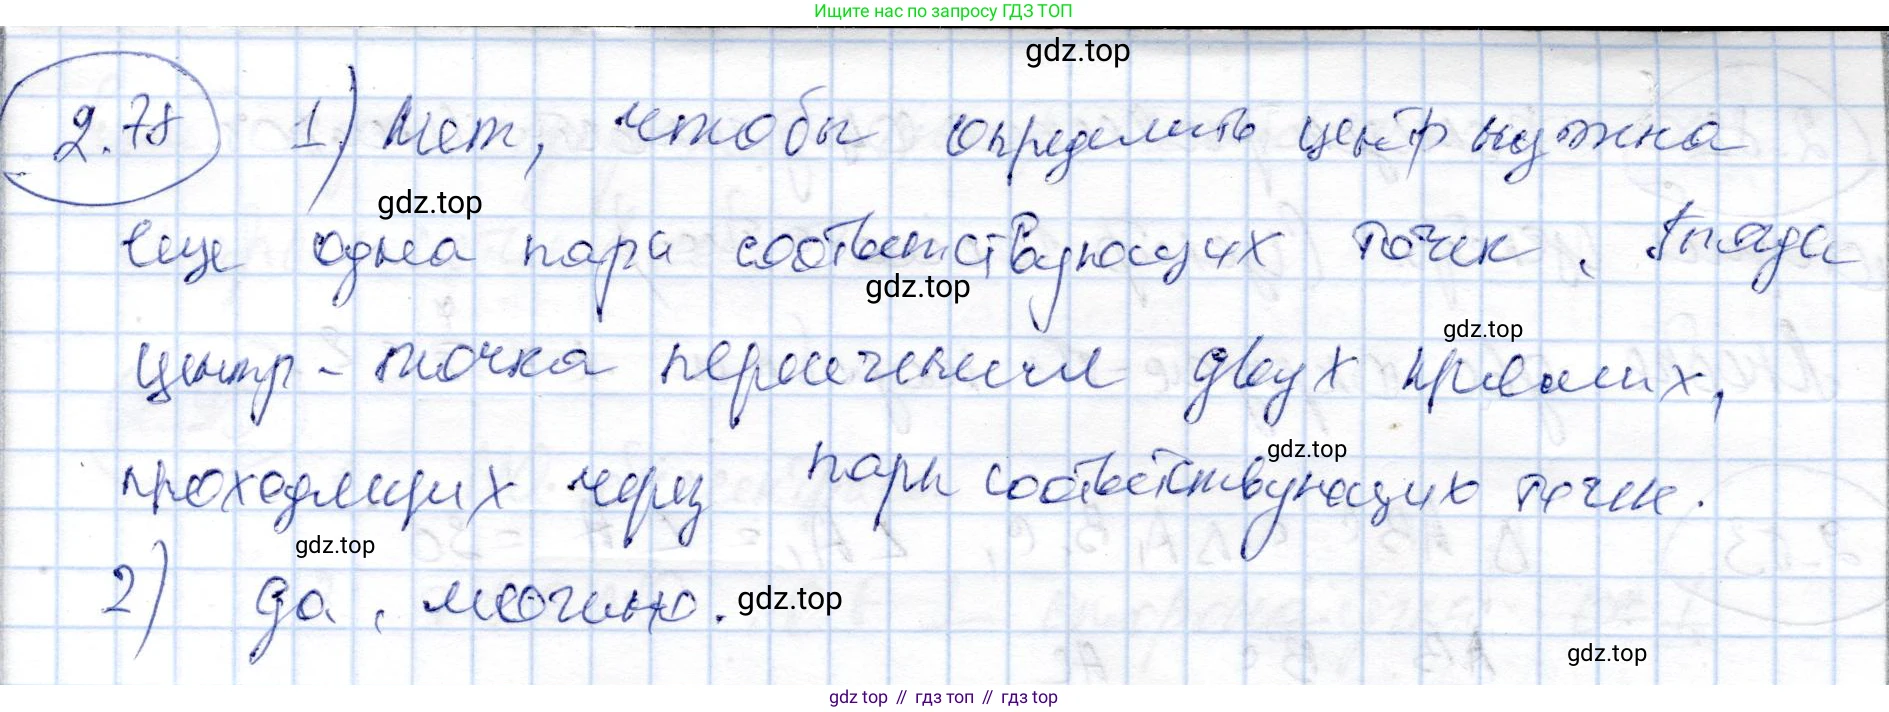 Ищите нас по запросу ГДЗ ТОП
gdz.top
2.78 1) Нет, чтобы определить центр нужна
gdz.top
еще одна пара соответствующих точек. Тогда
gdz.top
gdz.top
центр - точка пересечения двух прямых,
gdz.top
проходящих через пары соответствующих точек.
gdz.top
2) да, можно.
gdz.top
gdz.top
gdz top // гдз топ // гдз top